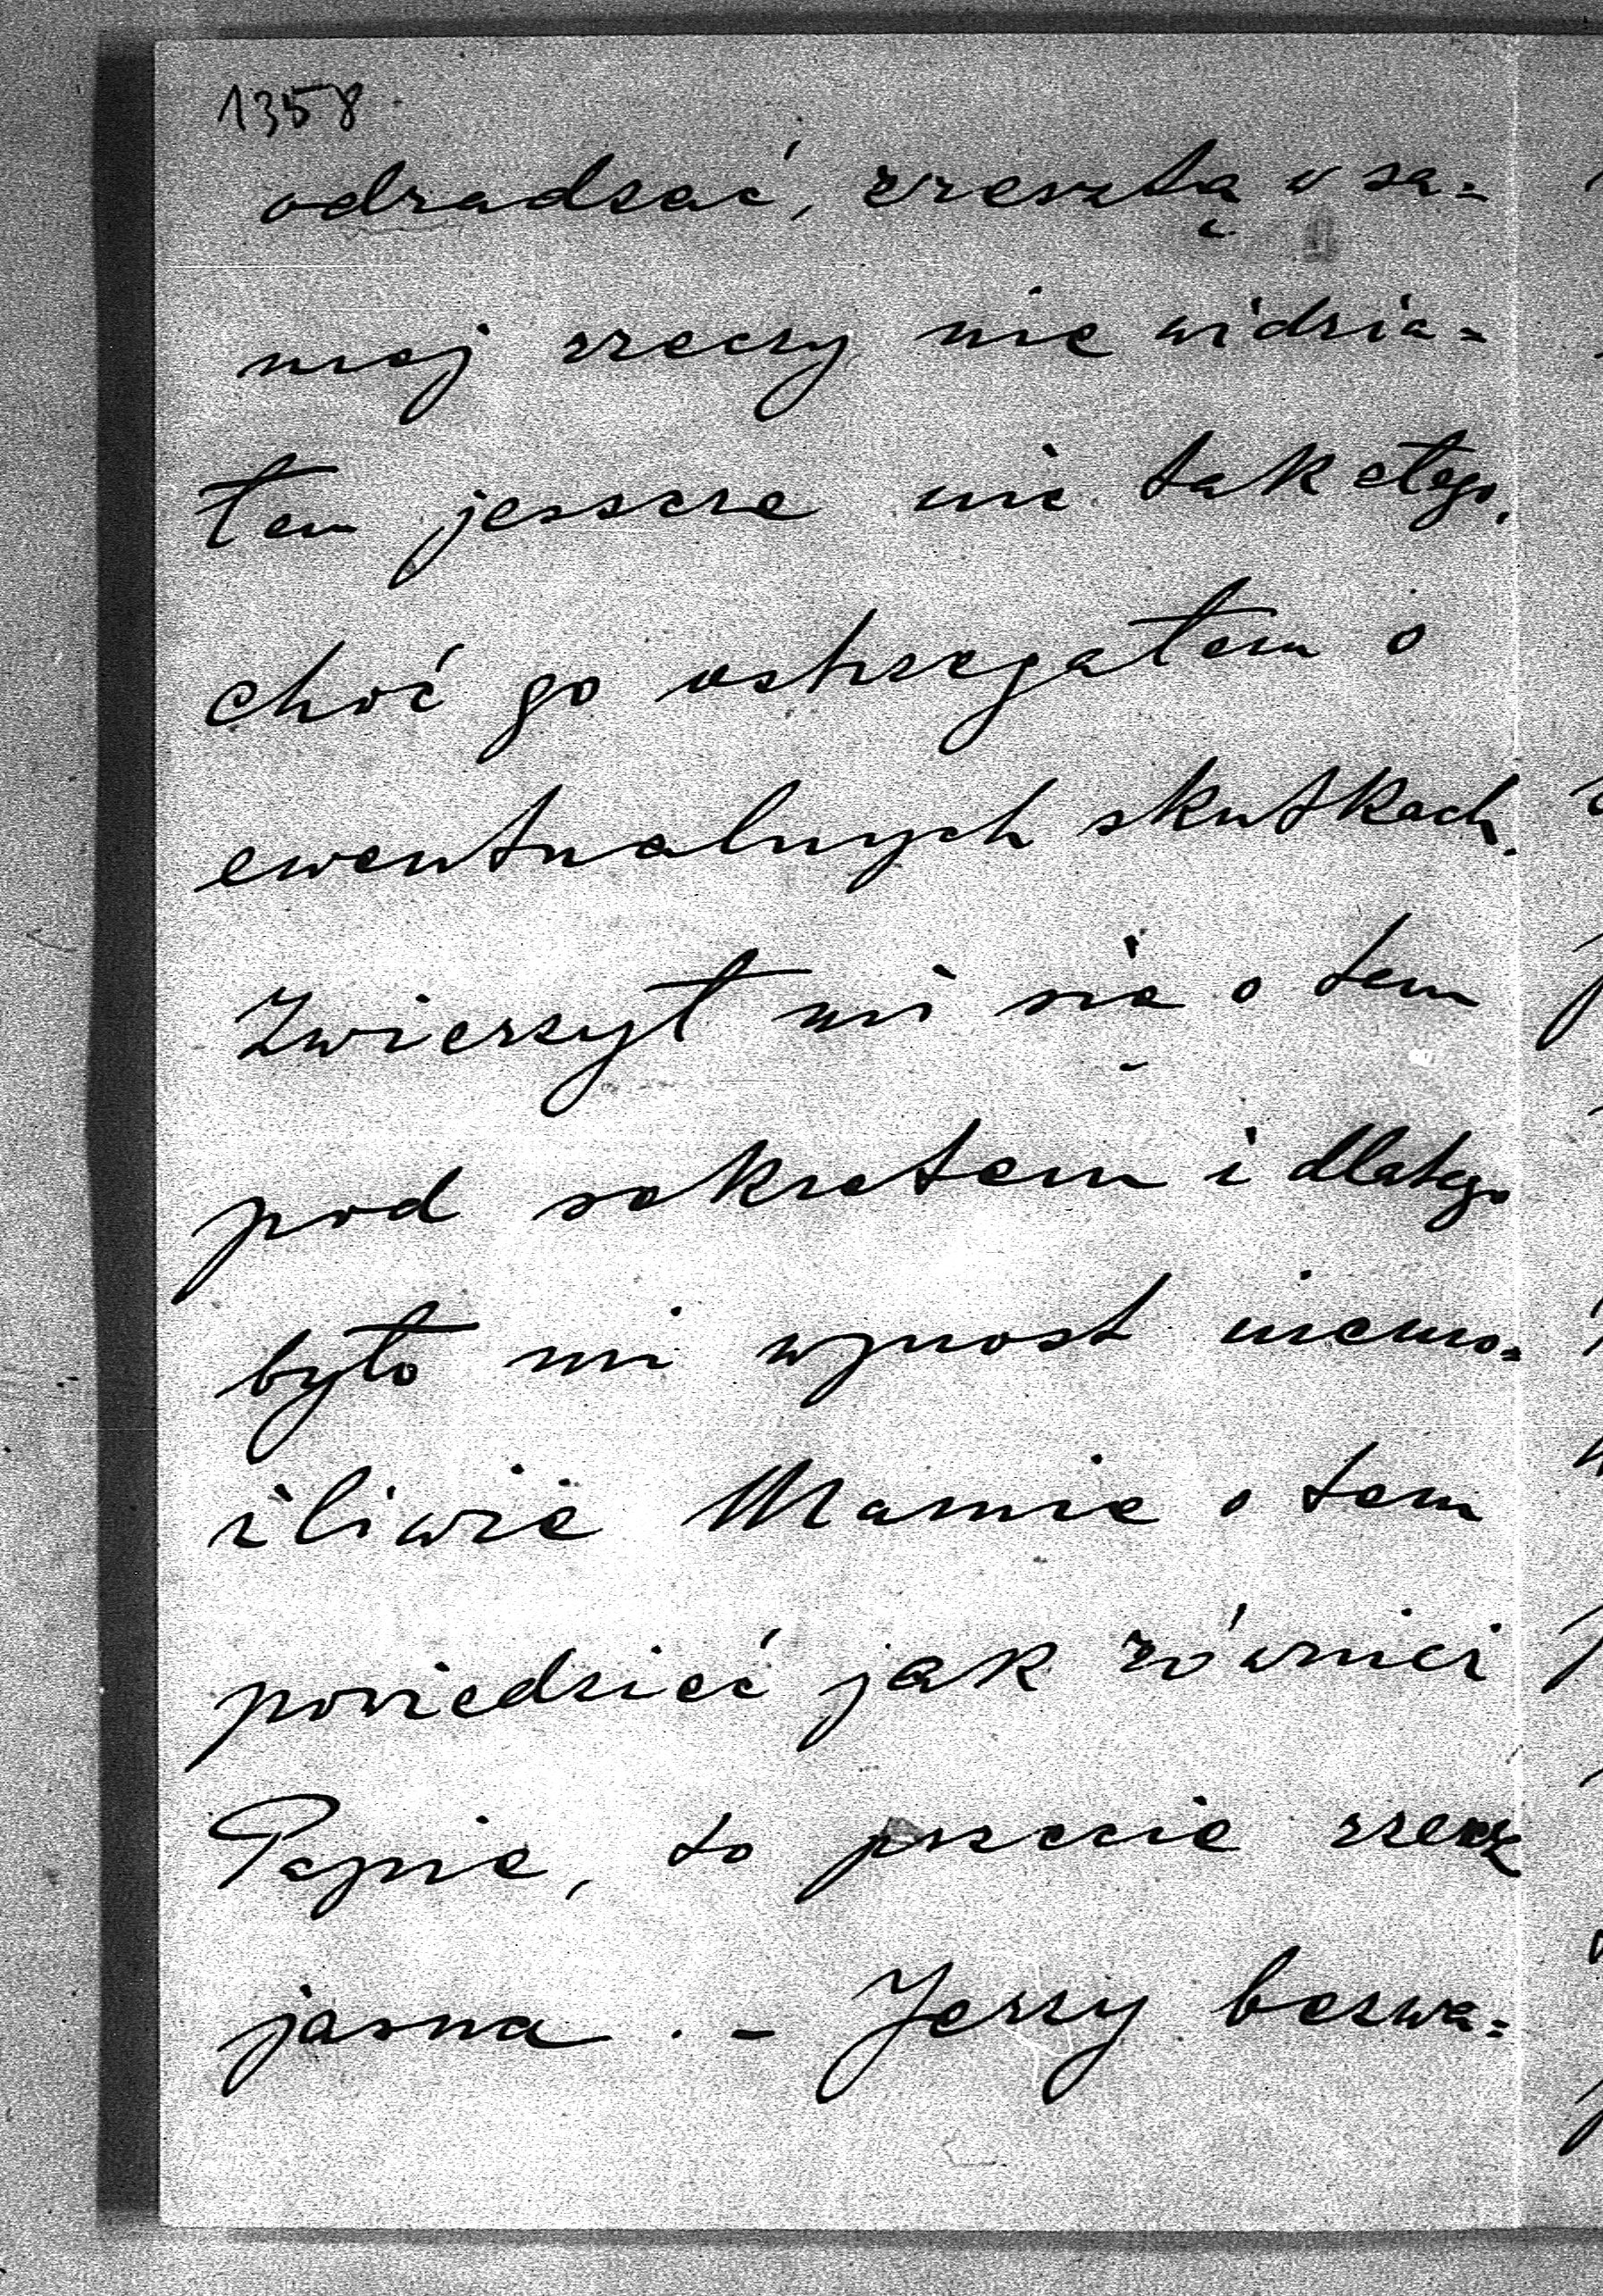 1358
odradzać, zresztą w sa=
mej rzeczy nie widzia=
łem jeszcze nic tak złego,
choć go ostrzegałem o
ewentualnych skutkach.
Zwierzył mi się o tem
pod sekretem i dlatego
było mi wprost niemo=
żliwie Mamie o tem
powiedzieć jak również
Papie, to przecie rzecz
jasna. – Jerzy bezwa=